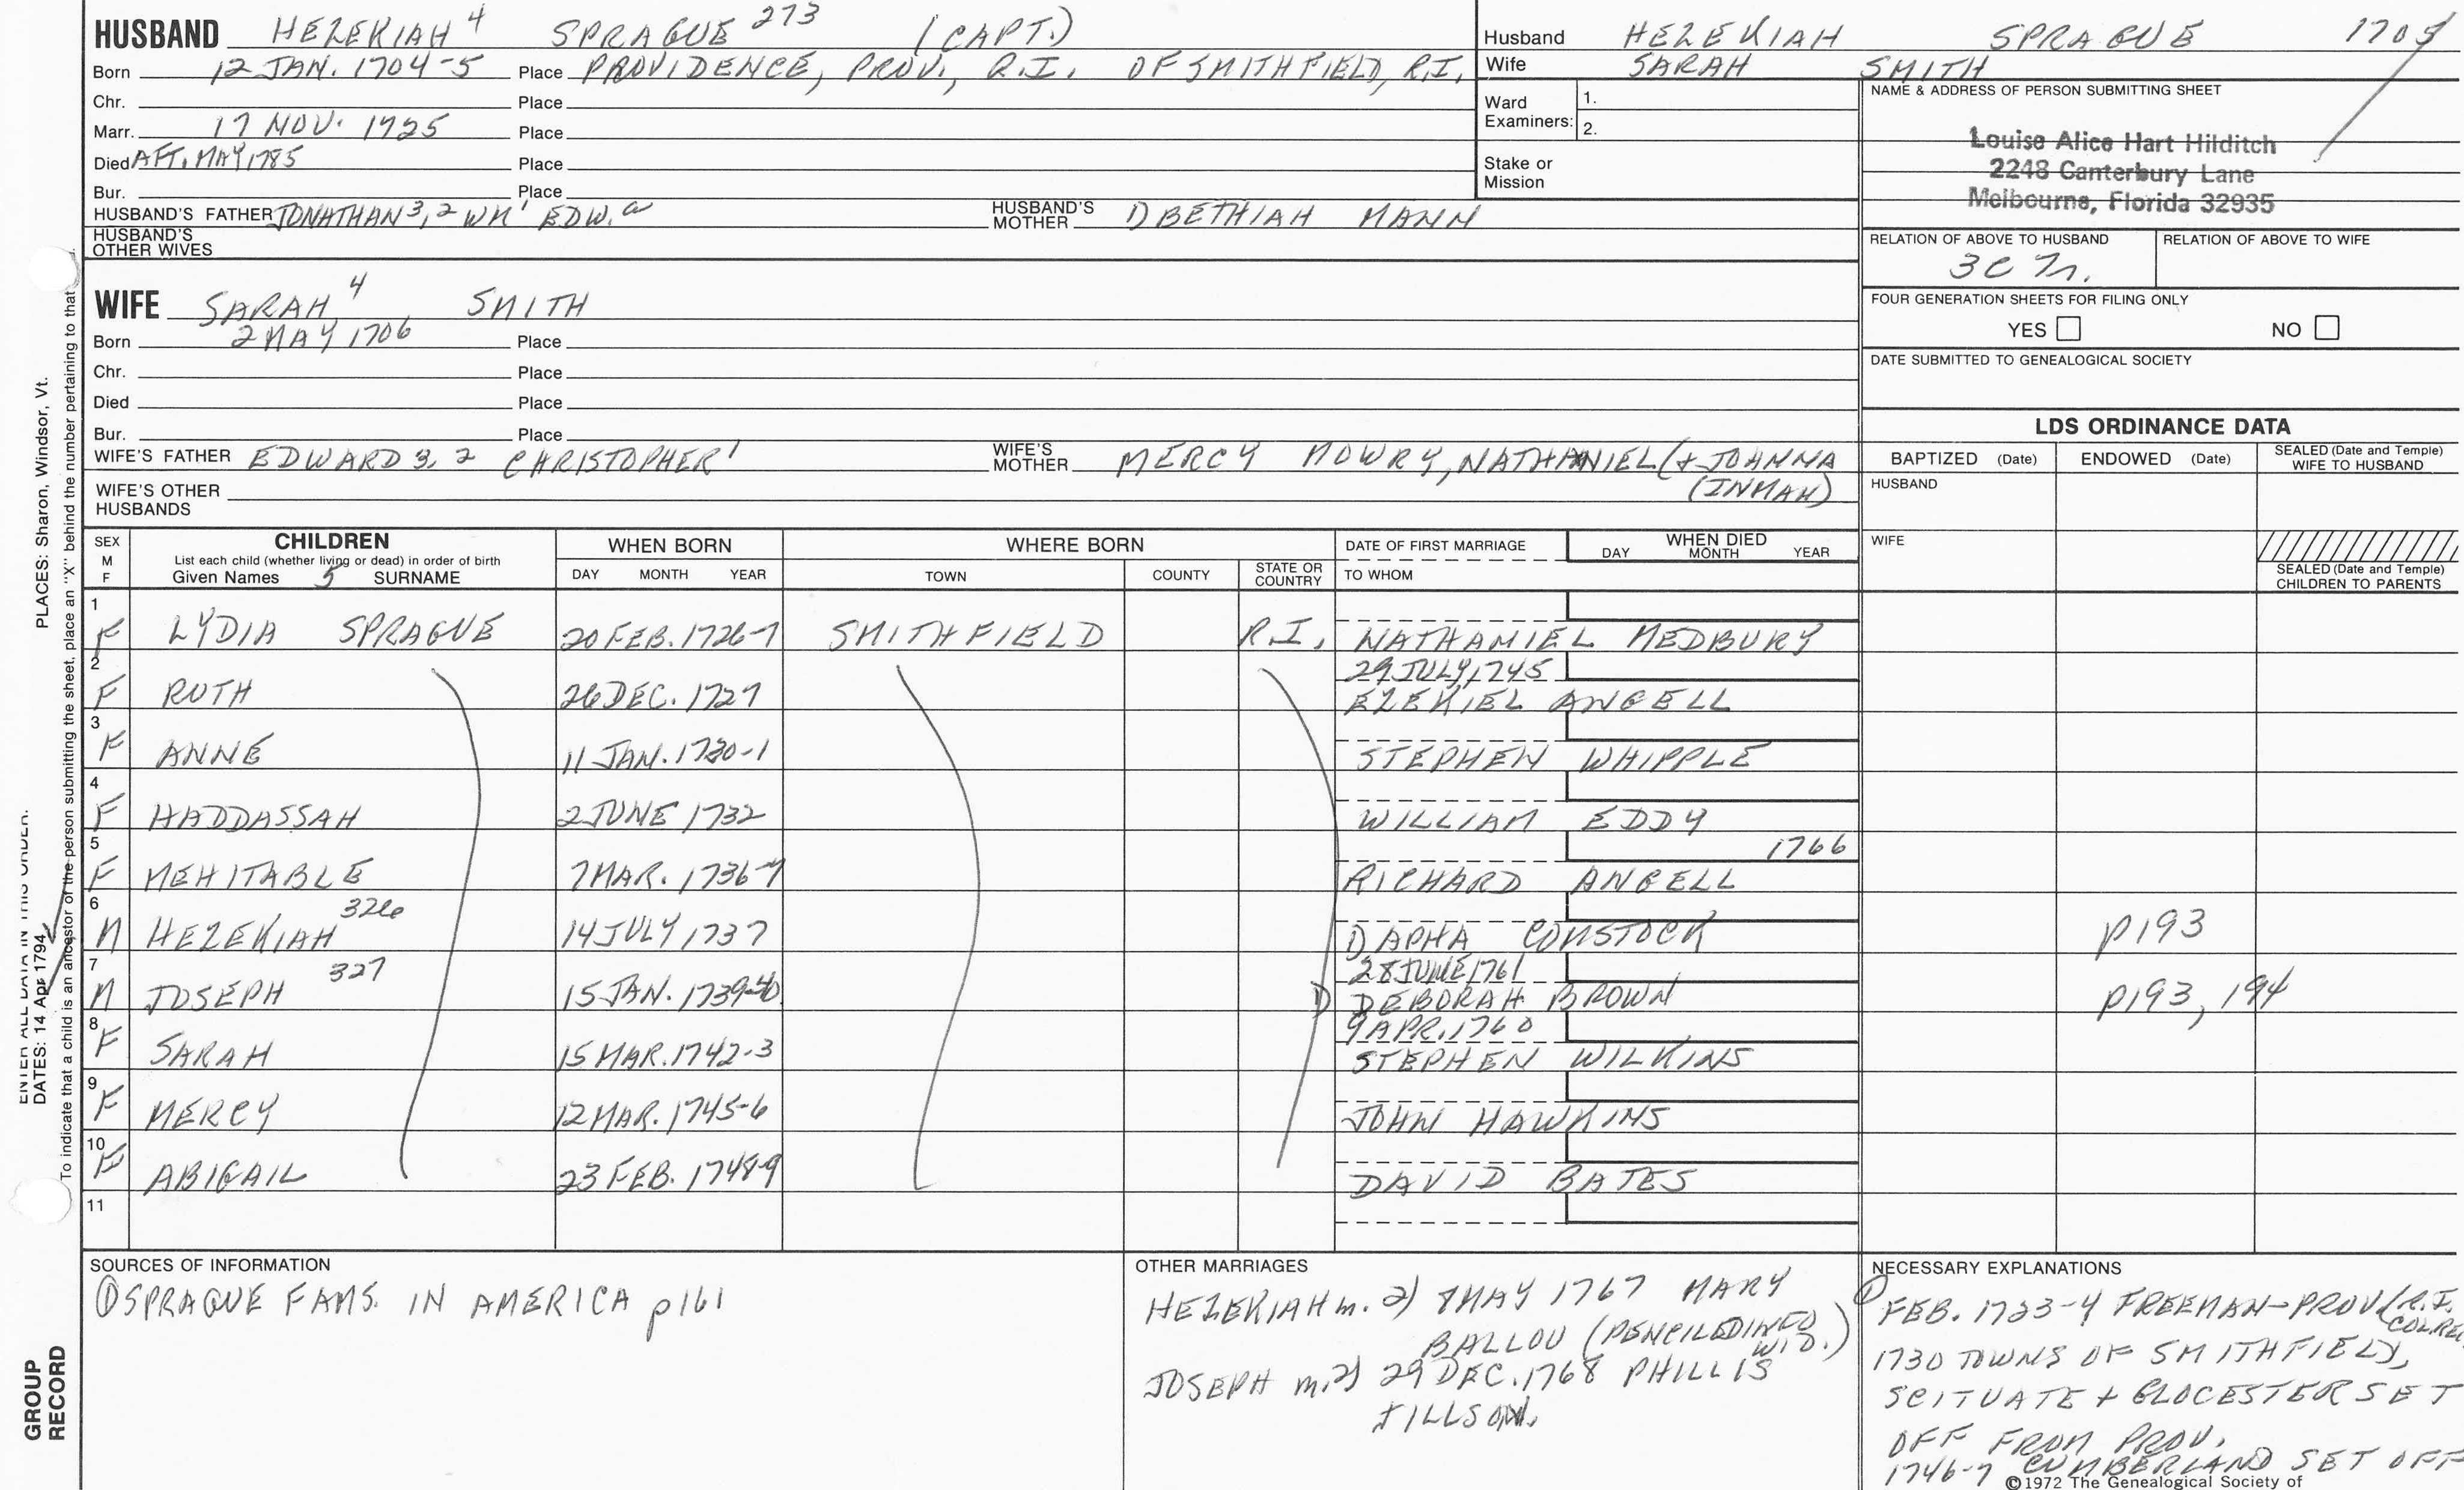 HUSBAND HEZEKIAH 4 SPRAGUE 273 (CAPT.)
Born 12 JAN. 1704-5 Place PROVIDENCE, PROV., R.I. OF SMITHFIELD, R.I.
Chr. Place
Marr. 17 NOV. 1725 Place
Died AFT. MAY 1785 Place
Bur. Place
HUSBAND'S FATHER JONATHAN 3, 2 WM 1 EDW. a HUSBAND'S MOTHER D BETHIAH MANN
HUSBAND'S OTHER WIVES
Husband HEZEKIAH SPRAGUE 1705
Wife SARAH SMITH
Ward Examiners: 1.
2.
Stake or Mission
NAME & ADDRESS OF PERSON SUBMITTING SHEET
Louise Alice Hart Hilditch
2248 Canterbury Lane
Melbourne, Florida 32935
RELATION OF ABOVE TO HUSBAND RELATION OF ABOVE TO WIFE
3C
FOUR GENERATION SHEETS FOR FILING ONLY
YES NO
DATE SUBMITTED TO GENEALOGICAL SOCIETY
WIFE SARAH 4 SMITH
Born 2 MAY 1706 Place
Chr. Place
Died Place
Bur. Place
WIFE'S FATHER EDWARD 3, 2 CHRISTOPHER 1 WIFE'S MOTHER MERCY MOWRY, NATHANIEL (+ JOHANNA
(INMAN)
WIFE'S OTHER HUSBANDS
LDS ORDINANCE DATA
BAPTIZED (Date) ENDOWED (Date) SEALED (Date and Temple) WIFE TO HUSBAND
HUSBAND
WIFE
SEALED (Date and Temple) CHILDREN TO PARENTS
SEX M F CHILDREN WHEN BORN WHERE BORN DATE OF FIRST MARRIAGE WHEN DIED
List each child (whether living or dead) in order of birth
Given Names 5 SURNAME DAY MONTH YEAR TOWN COUNTY STATE OR COUNTRY TO WHOM DAY MONTH YEAR
1
F LYDIA SPRAGUE 20 FEB. 1726-7 SMITHFIELD R.I. NATHANIEL MEDBURY
2 29 JULY, 1745
F RUTH 26 DEC. 1727 EZEKIEL ANGELL
3
F ANNE 11 JAN. 1730-1 STEPHEN WHIPPLE
4
F HADDASSAH 2 JUNE 1732 WILLIAM EDDY
5 1766
F MEHITABLE 7 MAR. 1736-7 RICHARD ANGELL
6
M HEZEKIAH 326 14 JULY 1737 D APHA COMSTOCK p193
7 28 JUNE 1761
M JOSEPH 327 15 JAN. 1739-40 D DEBORAH BROWN p193, 194
8 9 APR. 1760
F SARAH 15 MAR. 1742-3 STEPHEN WILKINS
9
F MERCY 12 MAR. 1745-6 JOHN HAWKINS
10
F ABIGAIL 23 FEB. 1748-9 DAVID BATES
11
SOURCES OF INFORMATION
① SPRAGUE FAMS. IN AMERICA p161
OTHER MARRIAGES
HEZEKIAH m. 2) 7 MAY 1767 MARY
BALLOU (PENCILED INFO
W.D.)
JOSEPH m. 2) 29 DEC. 1768 PHILLIS
JILLSON.
NECESSARY EXPLANATIONS
① FEB. 1733-4 FREEMAN-PROV (R.I.
COL.
1730 TOWNS OF SMITHFIELD,
SCITUATE + GLOCESTER SET
OFF FROM PROV.
1746-7 CUMBERLAND SET OFF
©1972 The Genealogical Society of
PLACES: Sharon, Windsor, Vt.
ENTER ALL DATA IN THIS ORDER:
DATES: 14 Apr 1794
To indicate that a child is an ancestor of the person submitting the sheet, place an "X" behind the number pertaining to that
GROUP
RECORD